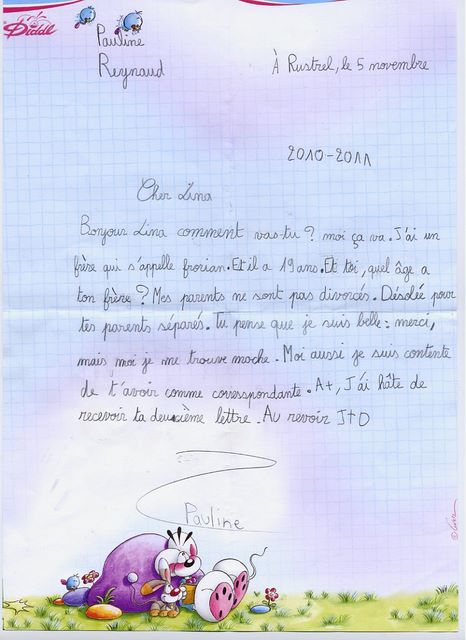 Diddl
Pauline
Reynaud
À Rustrel, le 5 novembre
2010-2011
Cher Lina
Bonjour Lina comment vas-tu ? moi ça va. J'ai un
frère qui s'appelle frorian. Et il a 19 ans. Et toi, quel âge a
ton frère ? Mes parents ne sont pas divorcés. Désolée pour
tes parents séparés. Tu pense que je suis belle : merci,
mais moi je me trouve moche. Moi aussi je suis contente
de t'avoir comme correspondante. A+, J'ai hâte de
recevoir ta deuxième lettre. Au revoir J+D
Pauline